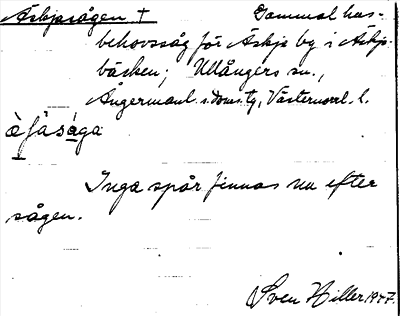 Äskjasågen † Gammal hus-
behovssåg för Äskja by i Äskja-
bäcken; Ullångers sn.,
Ångermanl. s. doms.tg, Västernorrl. l.
Inga spår finnas nu efter
sågen.
Sven Hiller 1947.